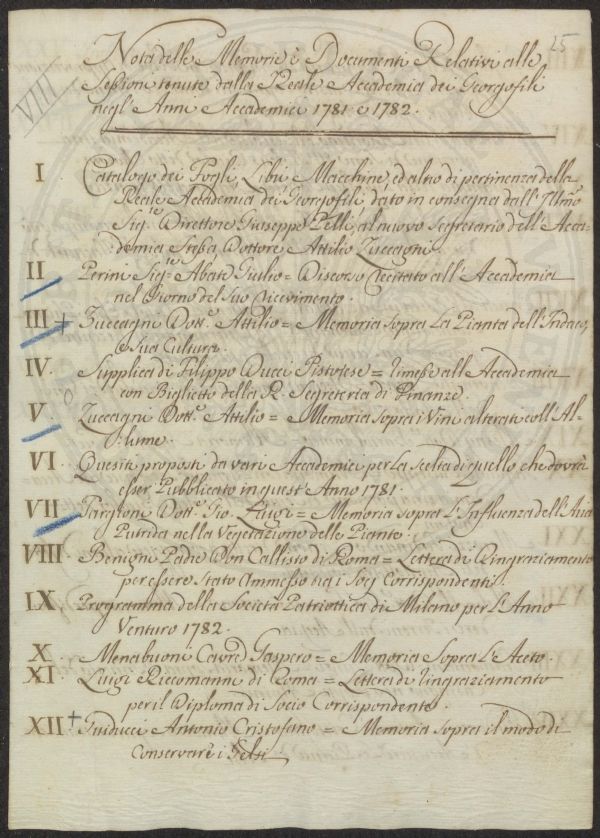 25
VIII
Nota delle Memorie e Documenti Relativi alle
Sessioni tenute dalla Reale Accademia dei Georgofili
negl'Anni Accademici 1781 e 1782.
I Catalogo dei Fogli, Libri Macchine, ed altro di pertinenza della
Reale Accademia dei Georgofili, dato in consegna dall'Illmo
Sigre Direttore Giuseppe Pelli, al nuovo Segretario dell'Acca-
demia stessa Dottore Attilio Zuccagni.
II Perini Sigre Abate Giulio = Discorso Recitato all'Accademia
nel Giorno del suo Ricevimento.
III + Zuccagni Dottre Attilio = Memoria sopra la Pianta dell'Indaco,
e sua Cultura.
IV Supplica di Filippo Ducci Pistojese = rimessa all'Accademia
con Biglietto della R. Segreteria di Finanze.
V. Zuccagni Dottre Attilio = Memoria sopra i Vini alterati coll'Al-
lume.
VI Quesiti proposti da varj Accademici per la scelta di quello che dovrà
esser Pubblicato in quest'Anno 1781.
VII Targioni Dottre Gio. Luigi = Memoria sopra l'Influenza dell'Aria
Putrida nella Vegetazione delle Piante.
VIII Benigni Padre Don Callisto di Roma = Lettera di Ringraziamento
per essere stato Ammesso tra i Socj Corrispondenti.
IX Programma della Società Patriottica di Milano per l'Anno
Venturo 1782.
X. Menabuoni Cavre Gaspero = Memoria Sopra l'Aceto.
XI. Luigi Riccomanni di Roma = Lettera di ringraziamento
per il Diploma di Socio Corrispondente.
XII + Guiducci Antonio Cristofano = Memoria sopra il modo di
Conservare i Gelsi.